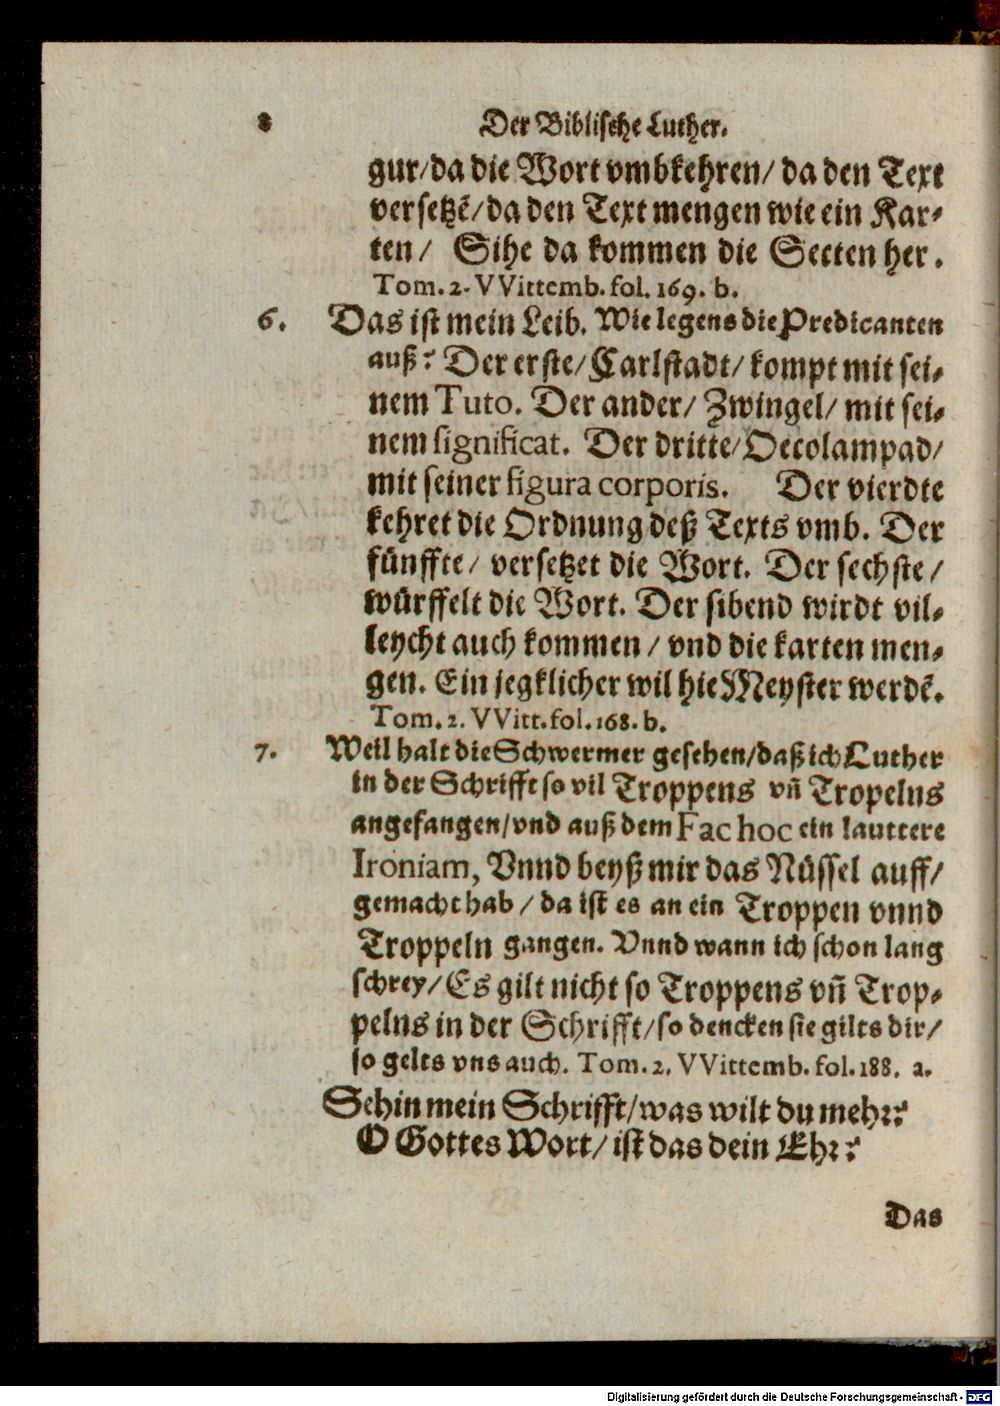 8 Der Biblische Luther.
gur/da die Wort vmbkehren/ da den Text
versetzẽ/da den Text mengen wie ein Kar-
ten/ Sihe da kommen die Secten her.
Tom. 2. VVittemb. fol. 169. b.
6. Das ist mein Leib. Wie legens die Predicanten
auß? Der erste/ Carlstadt/ kompt mit sei-
nem Tuto. Der ander/ Zwingel/ mit sei-
nem significat. Der dritte/ Oecolampad/
mit seiner figura corporis. Der vierdte
kehret die Ordnung deß Texts vmb. Der
fünffte/ versetzet die Wort. Der sechste/
würffelt die Wort. Der sibend wirdt vil-
leycht auch kommen/ vnd die karten men-
gen. Ein jegklicher wil hie Meyster werdẽ.
Tom. 2. VVitt. fol. 168. b.
7. Weil halt die Schwermer gesehen/daß ich Luther
in der Schrifft so vil Troppens vñ Tropelns
angefangen/vnd auß dem Fac hoc ein lauttere
Ironiam, Vnnd beyß mir das Nüssel auff/
gemacht hab/ da ist es an ein Troppen vnnd
Troppeln gangen. Vnnd wann ich schon lang
schrey/ Es gilt nicht so Troppens vñ Trop-
pelns in der Schrifft/so dencken sie gilts dir/
so gelts vns auch. Tom. 2. VVittemb. fol. 188. a.
Sehin mein Schrifft/was wilt du mehr?
O Gottes Wort/ ist das dein Ehr?
Das
Digitalisierung gefördert durch die Deutsche Forschungsgemeinschaft - DFG